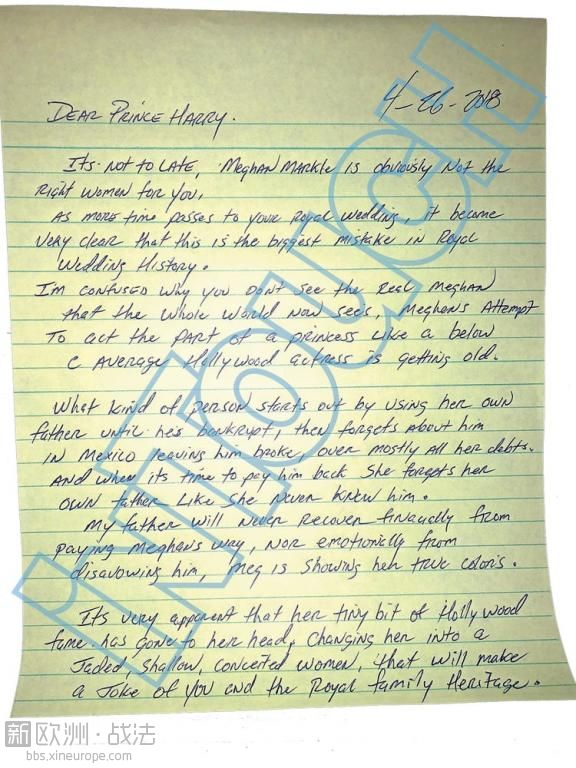 4-26-2018
DEAR PRINCE HARRY.
ITS NOT TO LATE, MEGHAN MARKLE IS obviously NOT the
RIGHT WOMEN FOR YOU,
AS MORE TIME PASSES to your Royal Wedding, it became
very clear that this is the biggest mistake in Royal
Wedding History.
I'M CONFUSED WHY YOU DON'T SEE the REAL MEGHAN
that the whole World Now sees, MEGHANS Attempt
TO act the PART of a princess Like a below
C AVERAGE Hollywood actress is getting old.
What kind of person starts out by using her own
father until he's bankrupt, then forgets About him
IN MEXICO leaving him broke, over mostly all her debts.
AND when its time to pay him back She forgets her
OWN father Like She Never Knew him.
My father will Never Recover finacially from
paying Meghans way, NOR emotionally from
disavowing him, Meg is Showing her true colors.
ITS very apparent that her tiny bit of Hollywood
fame has gone to her head, Changing her into a
Jaded, Shallow, conceited women, that will make
a Joke of you and the Royal family Heritage.
INTOUCH
新欧洲·战法
bbs.xineurope.com